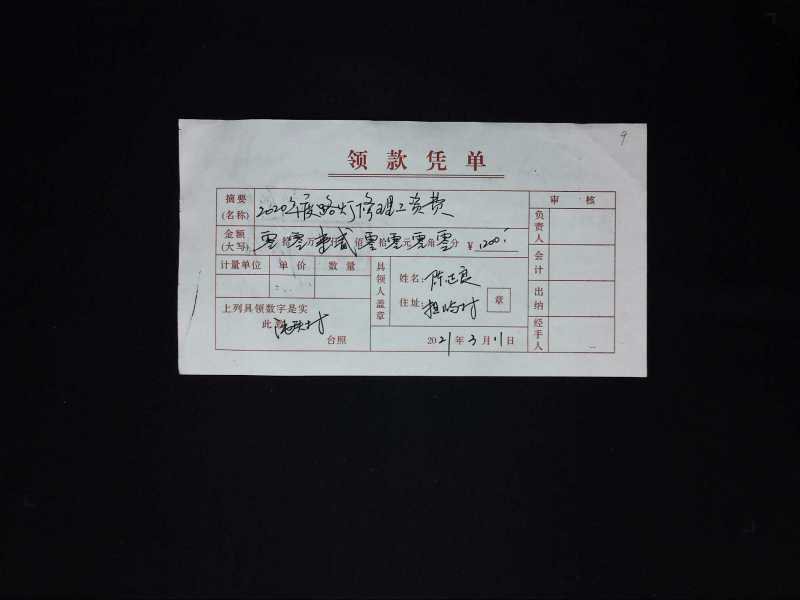 9
领款凭单
摘要
(名称)
2020年度路灯修理工资费
审核
金额
(大写)
零拾零万 仟贰佰零拾零元零角零分 ¥1200
负责人
计量单位 单价 数量
具领人盖章
姓名:陈正良
住址:
章
会计
出纳
上列具领数字是实
此
台照
2021年3月11日
经手人